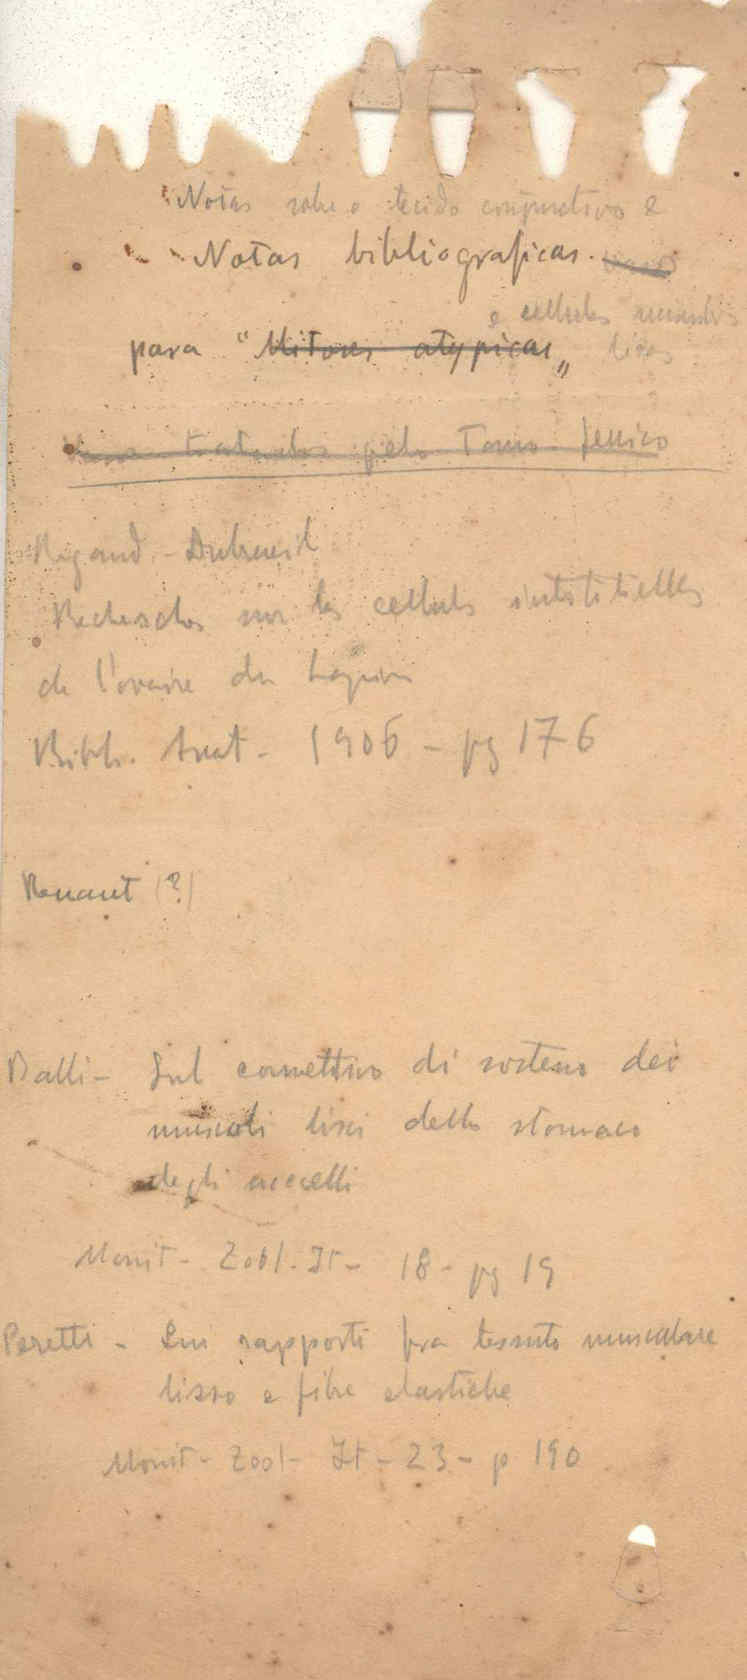 Notas sobre o tecido conjunctivo e
Notas bibliograficas.
e cellulas musculares
para "Mitoses atypicas" lisas
tratados pelo Tano-ferrico
Regaud - Dubreuil
Recherches sur les cellules interstitielles
de l'ovaire du Lapin
Bibl. Anat - 1906 - pg 176
Renaut (?)
Balli - Sul connettivo di sosteno dei
muscoli lisci dello stomaco
degli uccelli
Monit - Zool. It - 18 - pg 19
Peretti - Sui rapporti fra tessuto muscolare
lisso e fibre elastiche
Monit - Zool - It - 23 - p 190